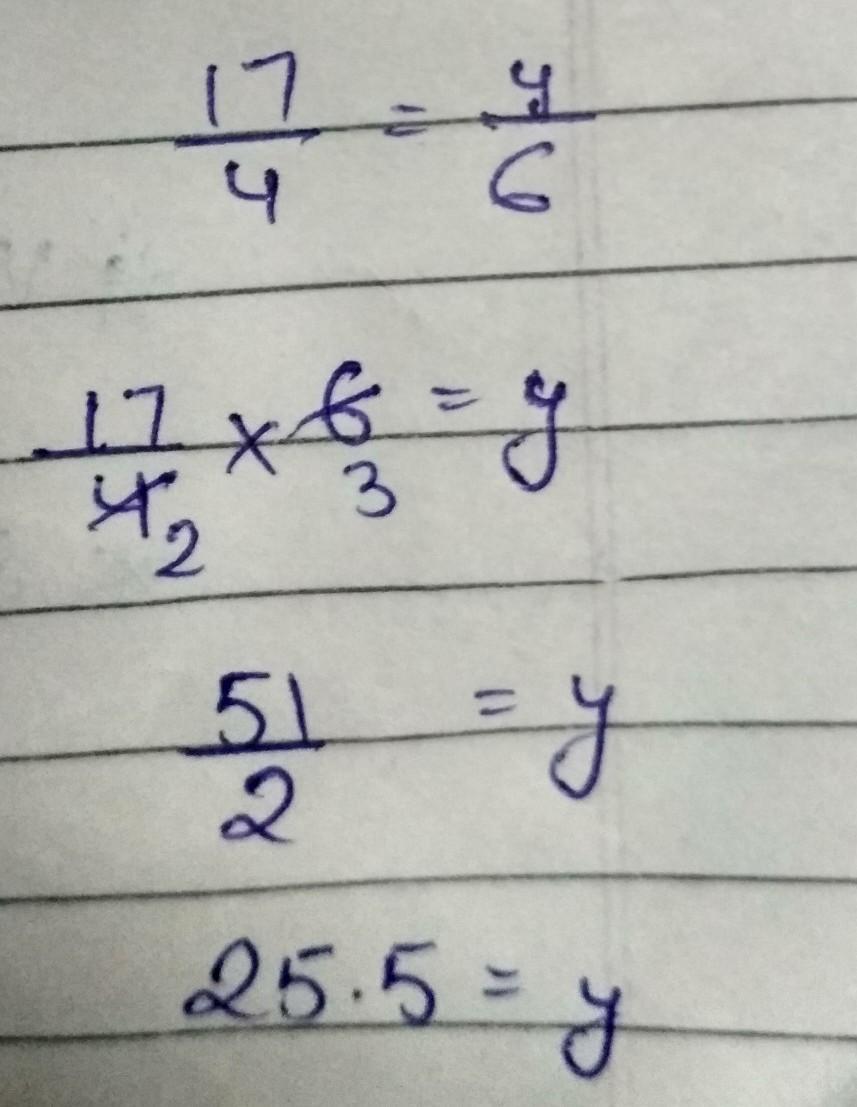 17/4 = y/6
17/4 2 × 6 3 = y
51/2 = y
25.5 = y